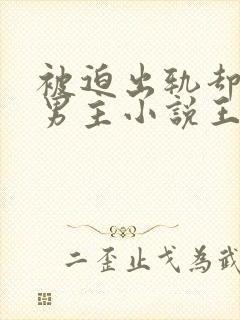 被迫出轨却
男主小说王
二歪止戈为武